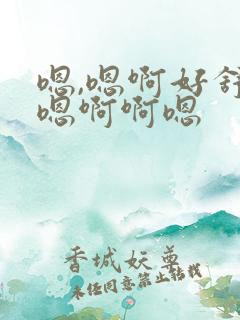 嗯,嗯啊好舒
嗯啊啊嗯
香城妖尊
未经同意禁止转载